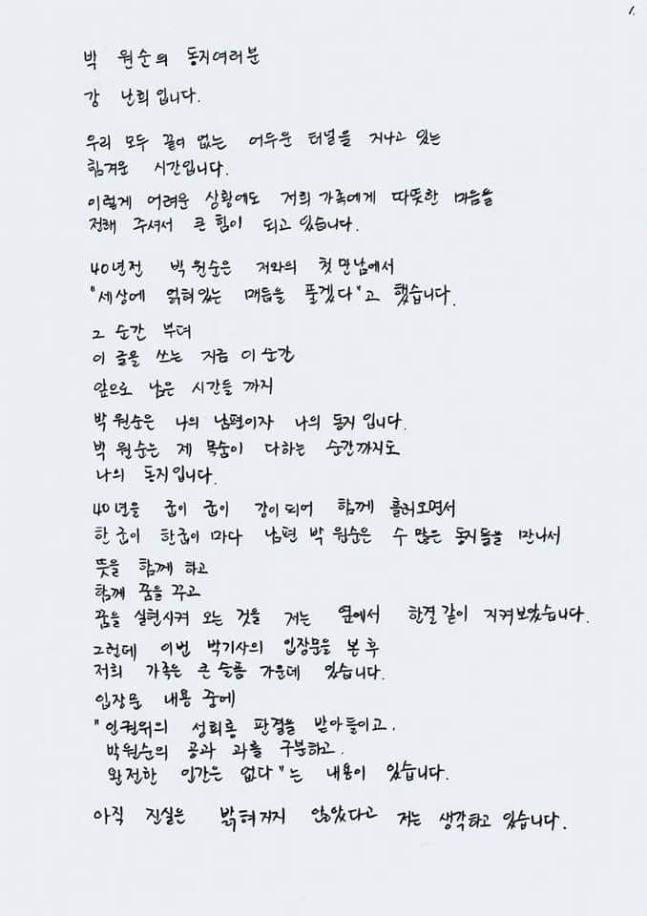 1.
박 원순의 동지여러분
강 난희입니다.
우리 모두 끝이 없는 어두운 터널을 지나고 있는
힘겨운 시간입니다.
이렇게 어려운 상황에도 저희 가족에게 따뜻한 마음을
전해 주셔서 큰 힘이 되고 있습니다.
40년전 박 원순은 저와의 첫 만남에서
"세상에 얽혀있는 매듭을 풀겠다"고 했습니다.
그 순간 부터
이 글을 쓰는 지금 이 순간
앞으로 남은 시간들 까지
박 원순은 나의 남편이자 나의 동지 입니다.
박 원순는 제 목숨이 다하는 순간까지도
나의 동지입니다.
40년을 굽이 굽이 강이 되어 함께 흘러오면서
한 굽이 한굽이 마다 남편 박 원순은 수 많은 동지들을 만나서
뜻을 함께 하고
함께 꿈을 꾸고
꿈을 실현시켜 오는 것을 저는 옆에서 한결 같이 지켜보았습니다.
그런데 이번 박기사의 입장문을 본 후
저희 가족은 큰 슬픔 가운데 있습니다.
입장문 내용 중에
"인권위의 성희롱 판결을 받아들이고,
박원순의 공과 과를 구분하고,
완전한 인간은 없다"는 내용이 있습니다.
아직 진실은 밝혀지지 않았다고 저는 생각하고 있습니다.